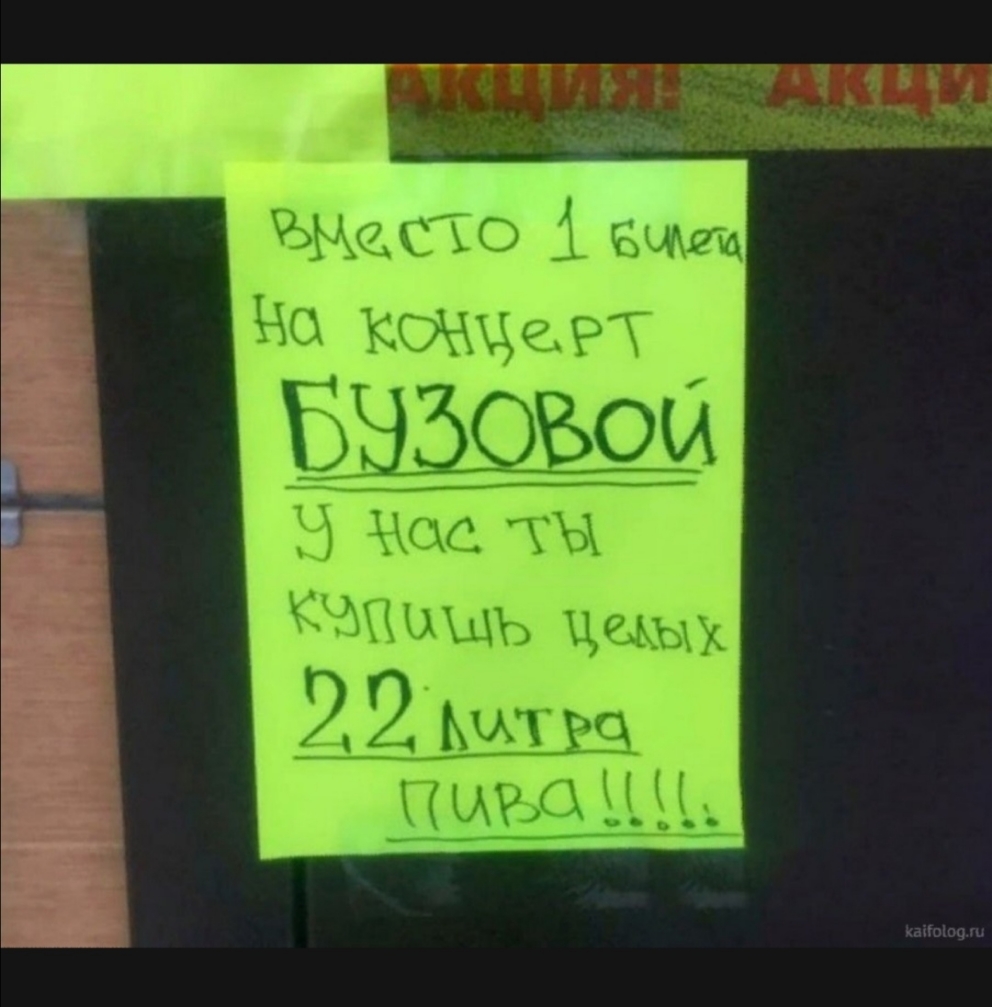 АКЦИЯ! АКЦИ
Вместо 1 билета
на концерт
БУЗОВОЙ
у нас ты
купишь целых
22 литра
пива!!!!.
kaifolog.ru